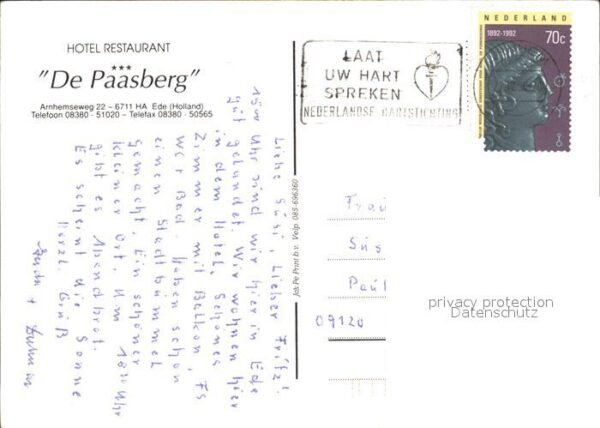 HOTEL RESTAURANT
"De Paasberg"
Arnhemseweg 22 – 6711 HA Ede (Holland)
Telefoon 08380 - 51020 – Telefax 08380 - 50565
Liebe Susi, Lieber Fritz!
15⁰⁰ Uhr sind wir hier in Ede
gut gelandet. Wir wohnen hier
in dem Hotel, Schönes
Zimmer mit Balkon, Es
Bad. Haben schon
einen Stadtbummel
gemacht, Ein schöner
kleiner Ort. Um 18⁰⁰ Uhr
gibt es Abendbrot.
Es scheint die Sonne
Herzl. Grüß
Job Pe Print b.v. Velp 085-696360
LAAT
UW HART
SPREKEN
NEDERLANDSE HARTSTICHTING
NEDERLAND
1892-1992
70c
Frau
Sus
Paul
09120
privacy protection
Datenschutz